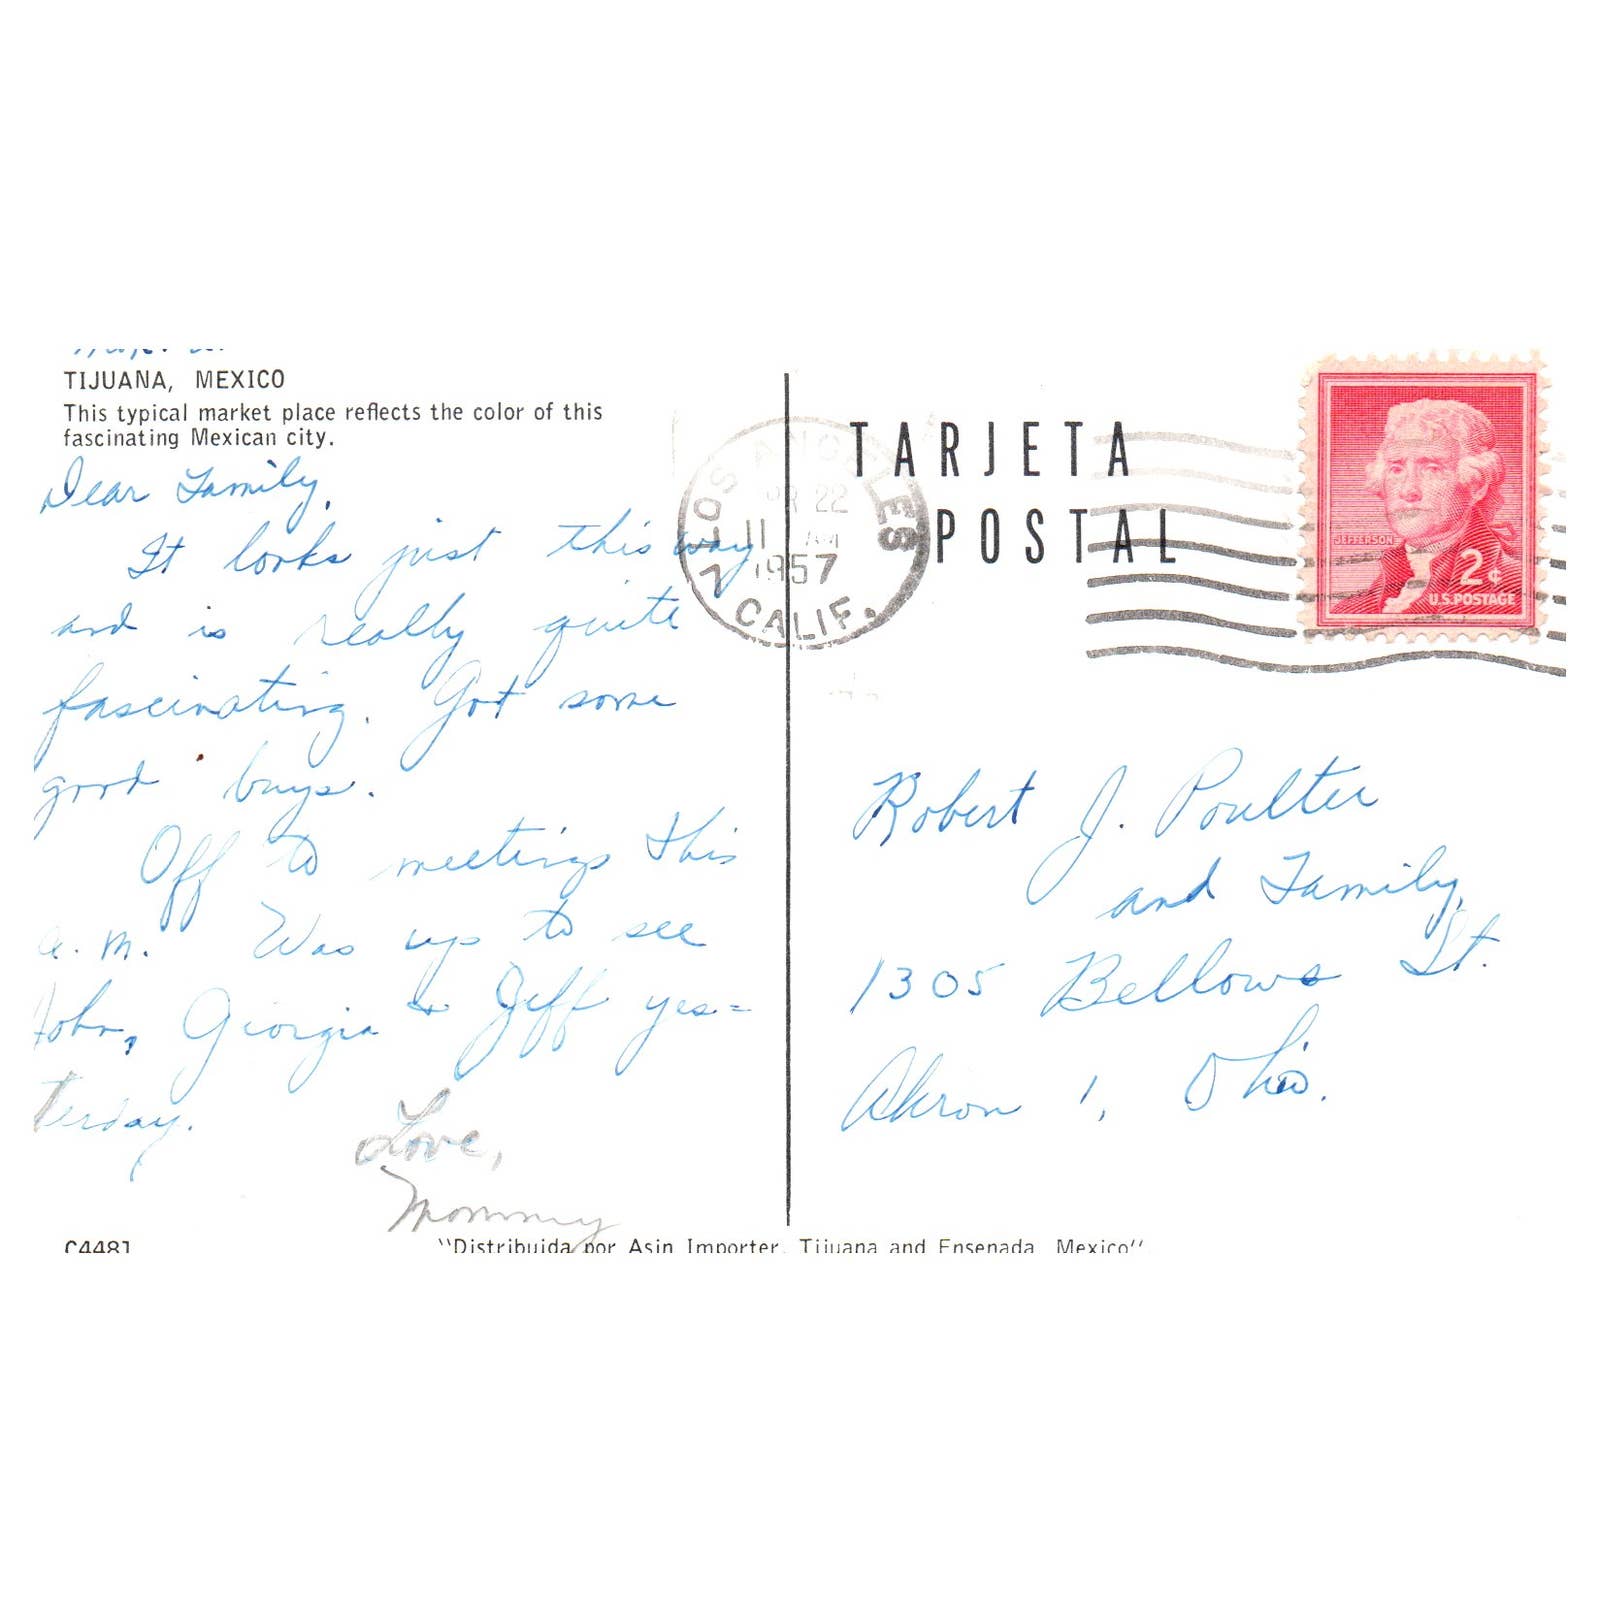 TIJUANA, MEXICO
This typical market place reflects the color of this
fascinating Mexican city.
Dear Family,
It looks just this way
and is really quite
fascinating. Got some
good buys.
Off to meetings this
a.m. Was up to see
John, Georgia & Jeff yes=
terday.
Love,
Mommy
C4481
"Distribuida por Asin Importer, Tijuana and Ensenada, Mexico"
TARJETA
POSTAL
LOS ANGELES
22
11 AM
1957
CALIF.
JEFFERSON
2¢
U.S. POSTAGE
Robert J. Poulter
and Family,
1305 Bellows St.
Akron 1, Ohio.